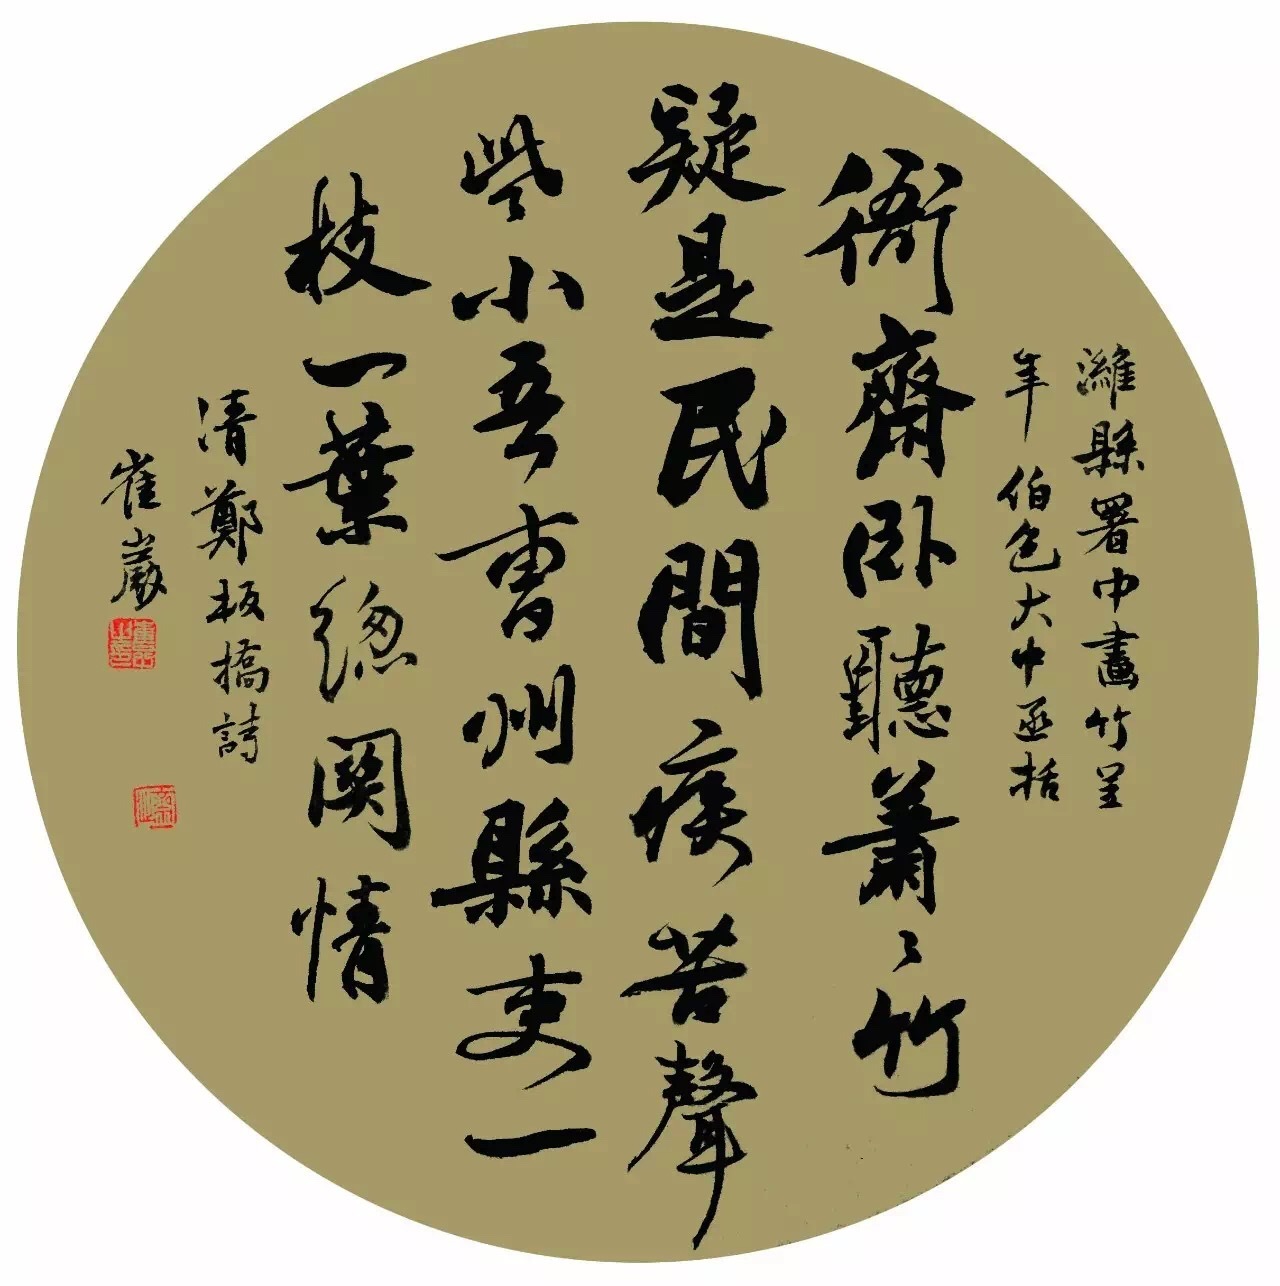 濰縣署中畫竹呈
年伯包大中丞括
衙齋卧聽蕭々竹
疑是民間疾苦聲
些小吾曹州縣吏一
枝一葉緫關情
清鄭板橋詩
崔巖